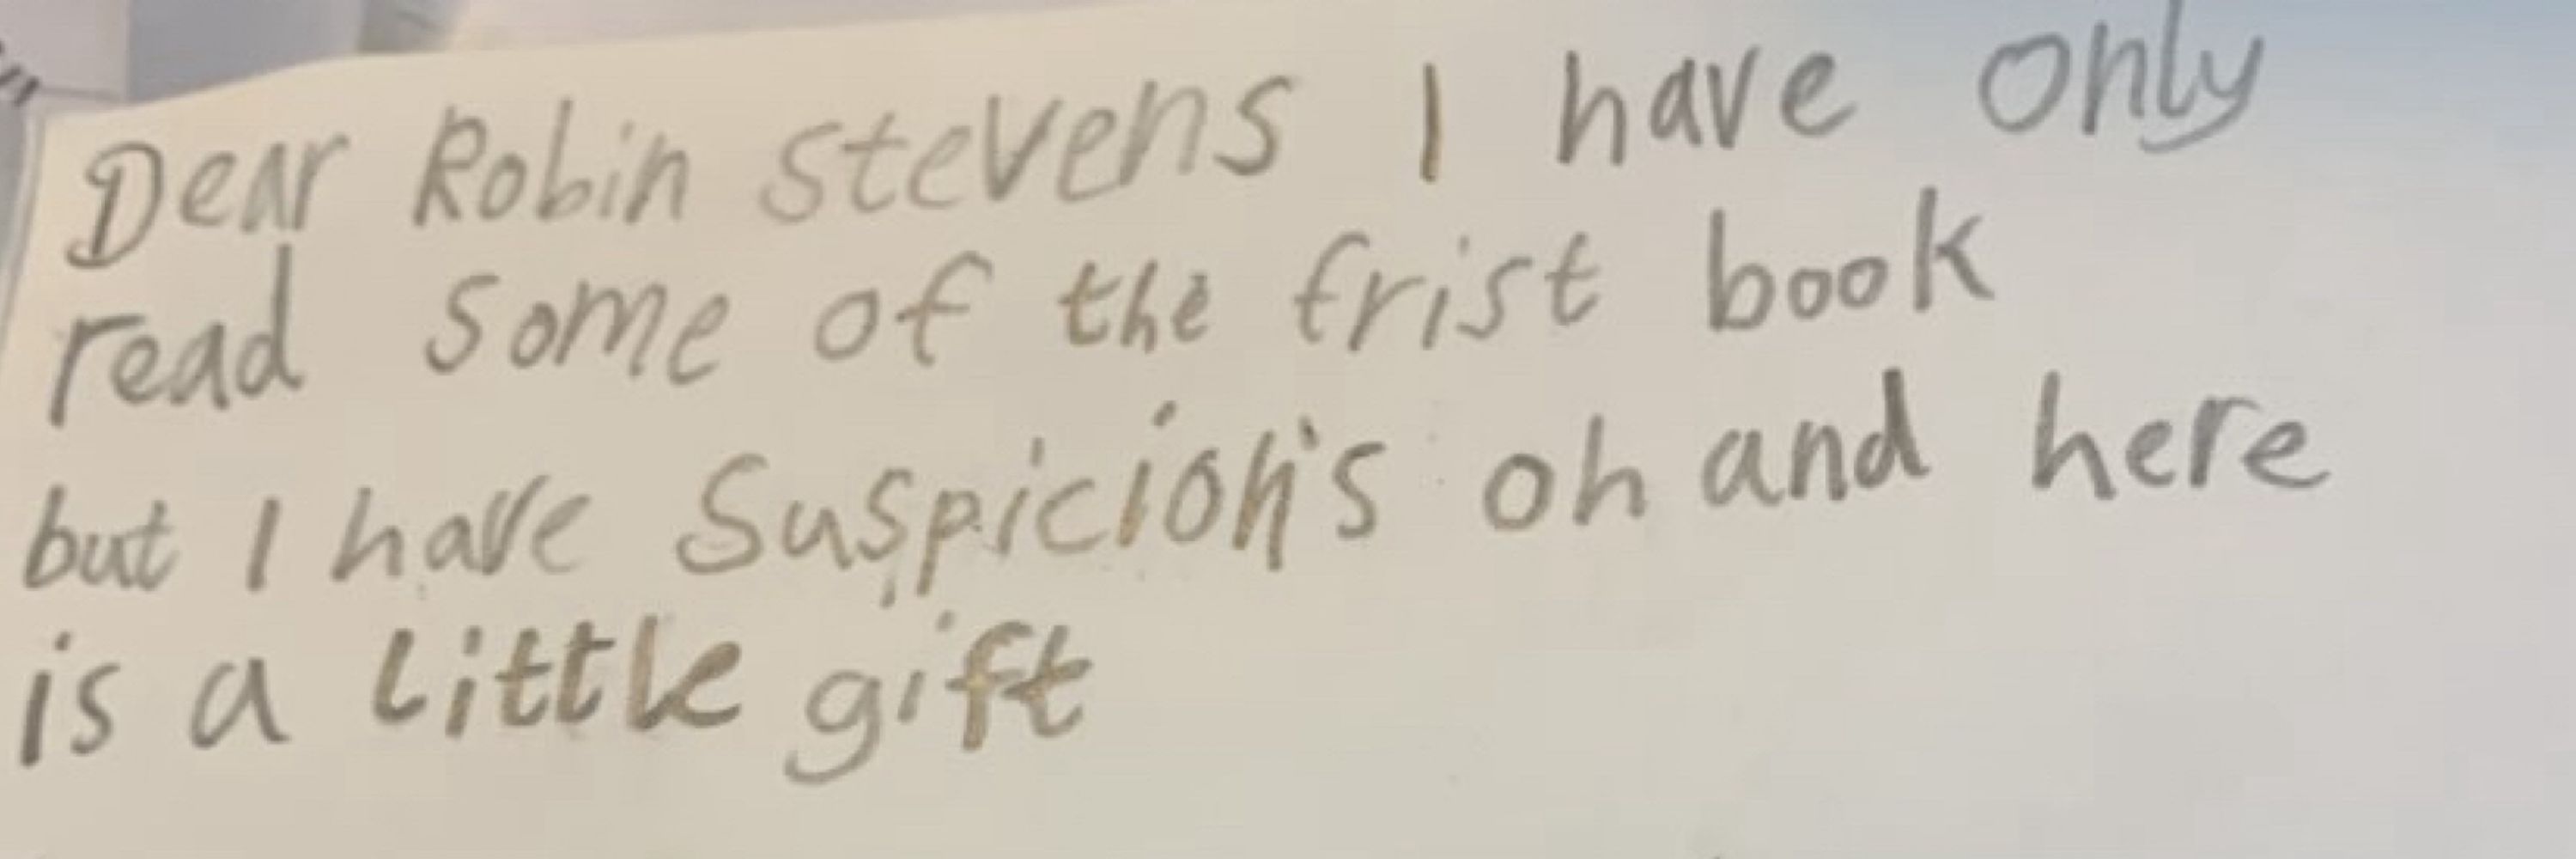 Dear Robin Stevens I have only
read some of the frist book
but I have Suspicion's oh and here
is a little gift